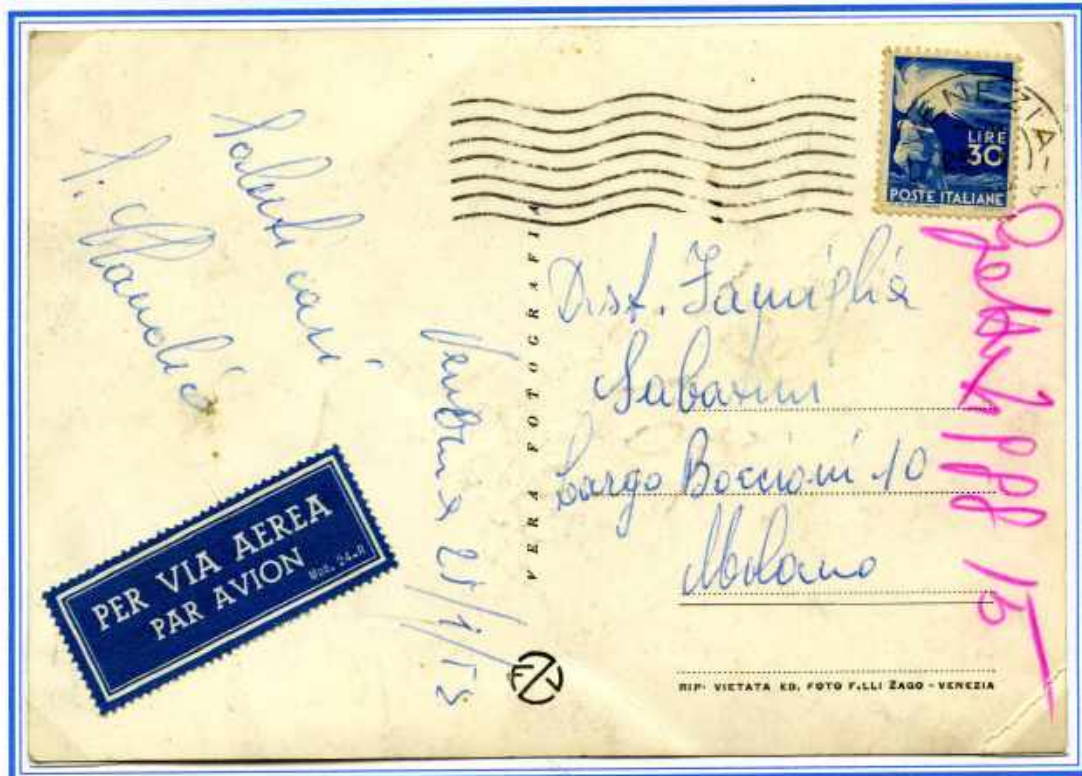 Saluti cari
Venezia 25/1/53
PER VIA AEREA
PAR AVION
Mod. 24-R
VERA FOTOGRAFIA
FZV
NEZIA
LIRE
30
POSTE ITALIANE
Dist. Famiglia
Sabatini
Largo Boccioni 10
Milano
15
RIP. VIETATA ED. FOTO F.LLI ZAGO - VENEZIA